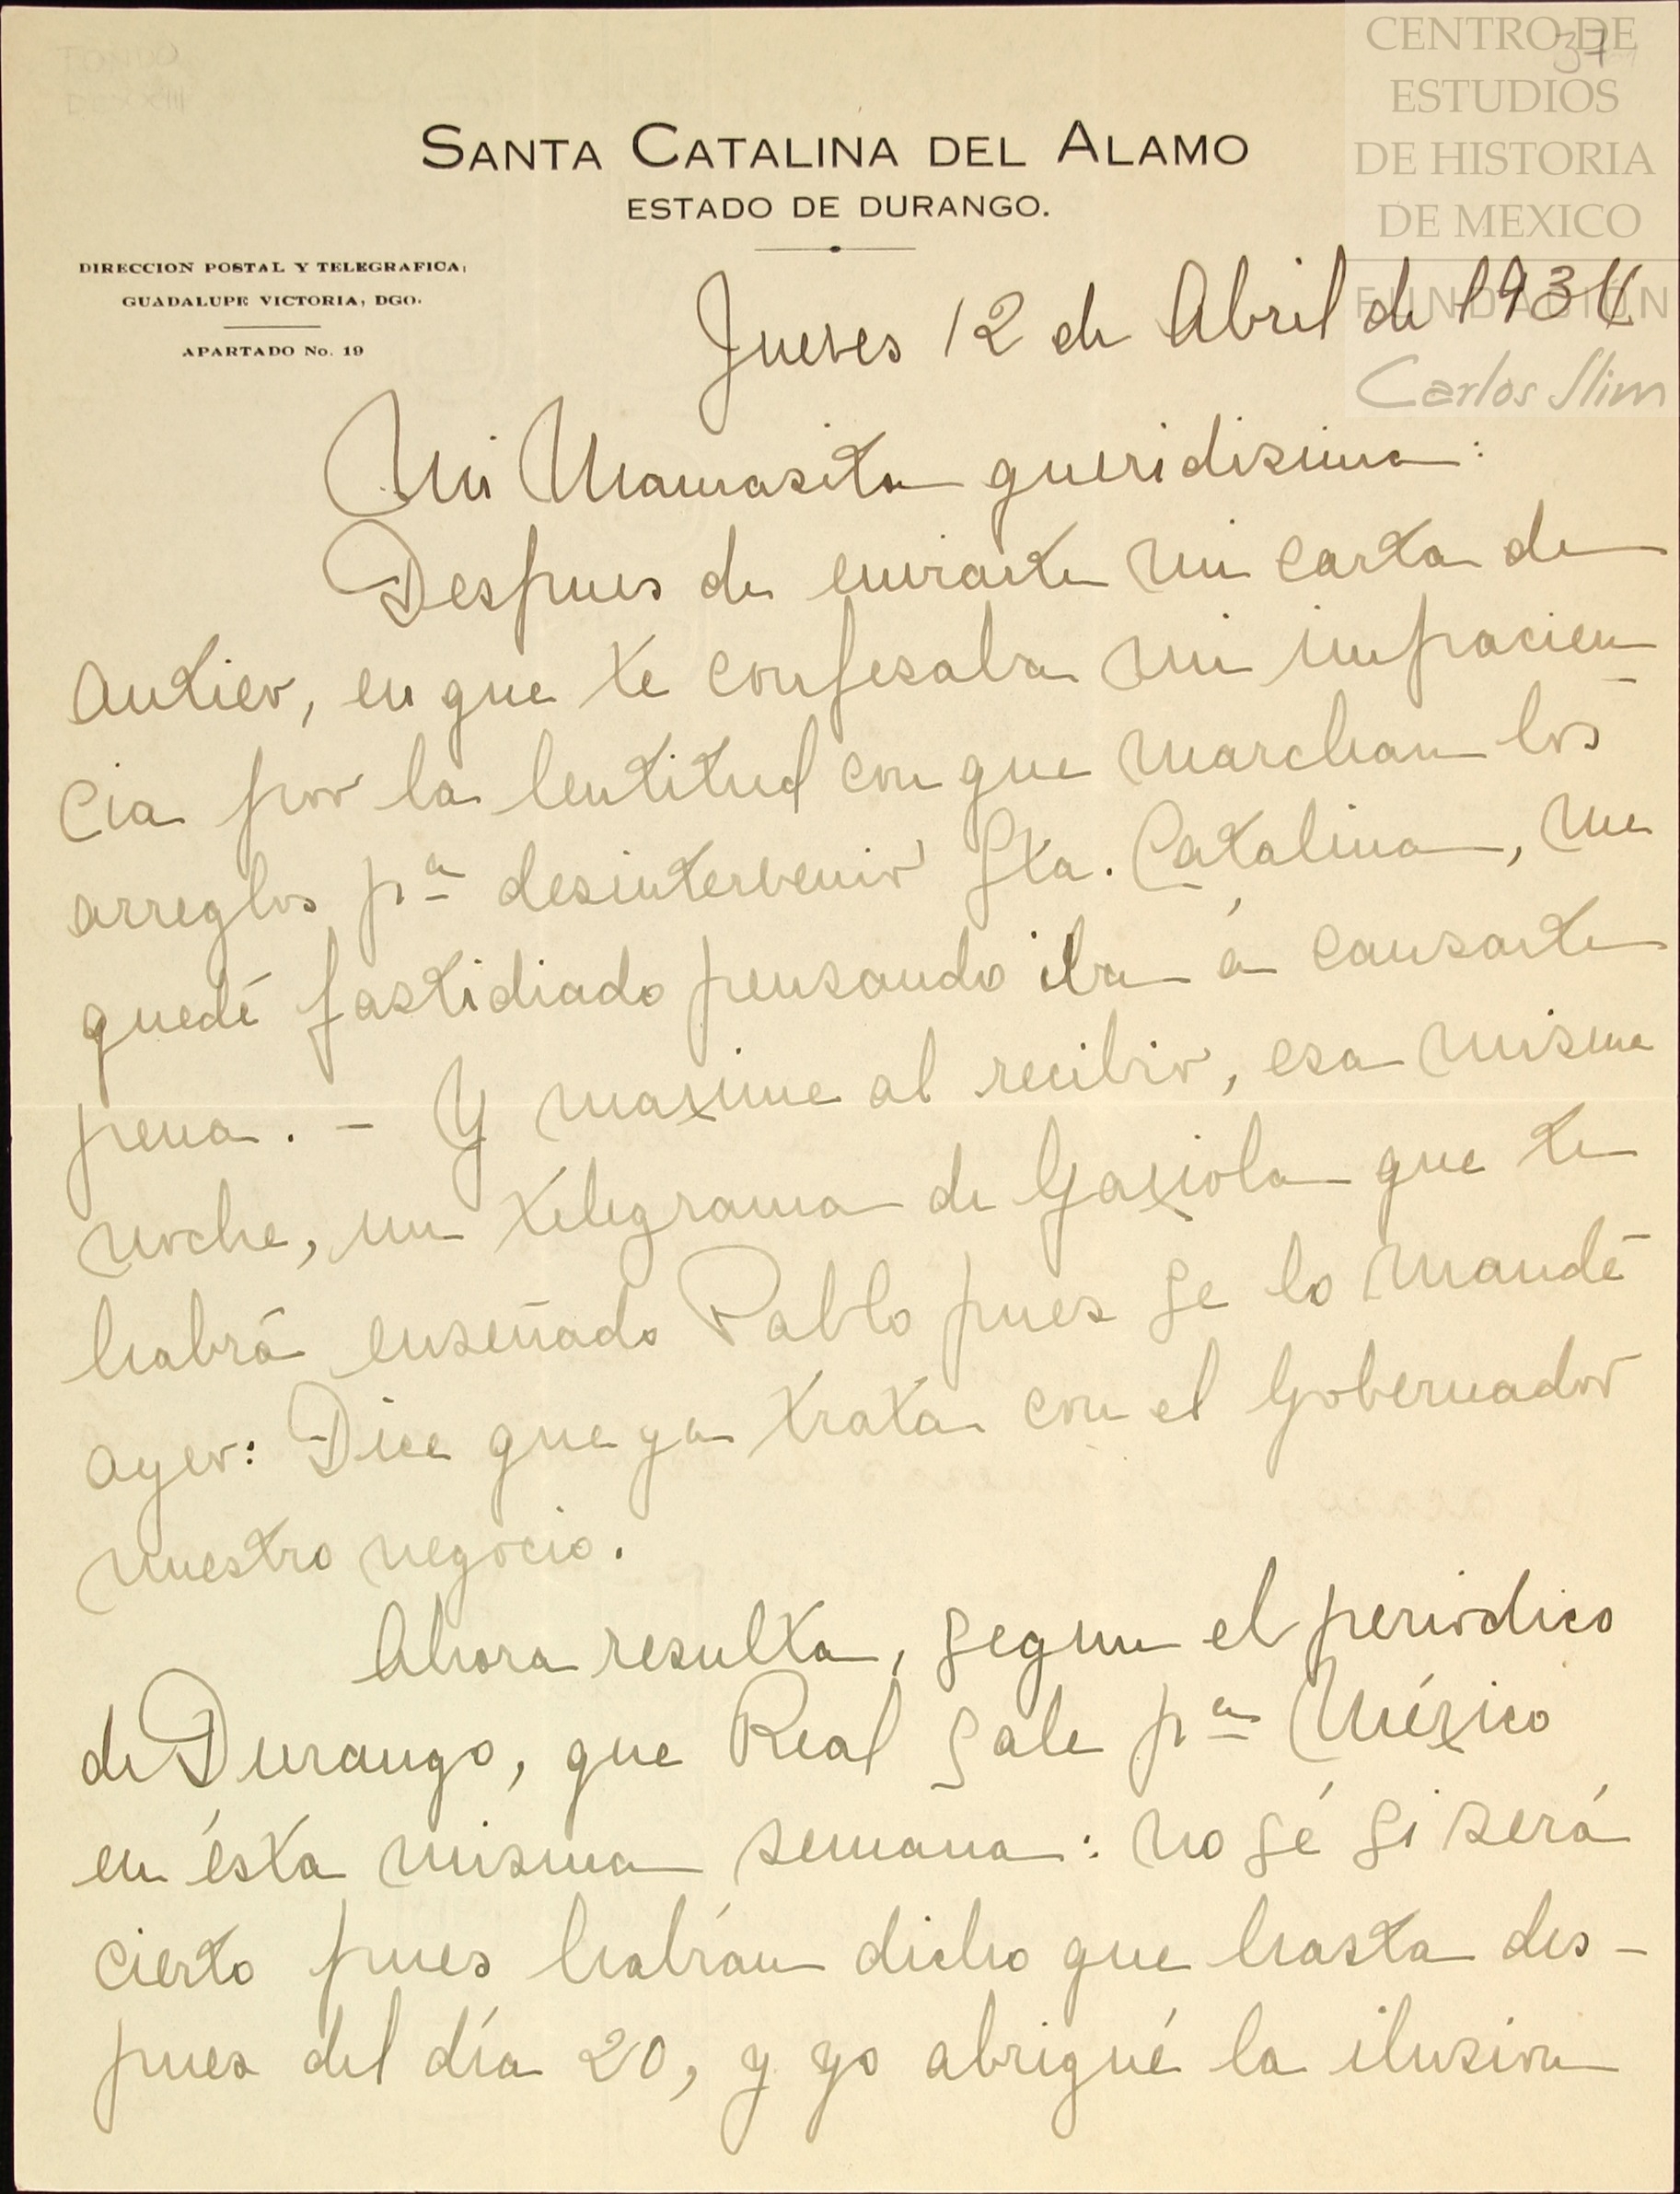 CENTRO DE
ESTUDIOS
DE HISTORIA
DE MEXICO
FUNDACIÓN
Carlos Slim
37
SANTA CATALINA DEL ALAMO
ESTADO DE DURANGO.
DIRECCION POSTAL Y TELEGRAFICA,
GUADALUPE VICTORIA, DGO.
APARTADO No. 19
Jueves 12 de Abril de 1934
Mi Mamasita queridisima:
Despues de enviarte mi carta de
antier, en que te confesaba mi impacien-
cia por la lentitud con que marchan los
arreglos pª desintervenir Sta. Catalina, me
quedé fastidiado pensando iba á causarte
pena. - Y maxime al recibir, esa misma
noche, un telegrama de Gaxiola que te
habrá enseñado Pablo pues se lo mandé
ayer: Dice que ya trata con el Gobernador
nuestro negocio.
Ahora resulta, segun el periodico
de Durango, que Real sale pª México
en ésta misma semana: no sé si será
cierto pues habían dicho que hasta des-
pues del día 20, y yo abrigué la ilusion